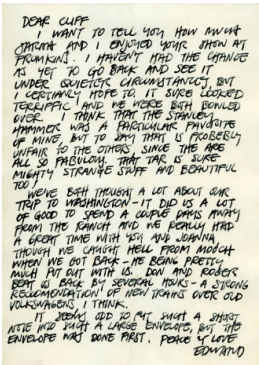 DEAR CLIFF
I WANT TO TELL YOU HOW MUCH
AND I ENJOYED YOUR SHOW AT
FRUMKINS. I HAVEN'T HAD THE CHANCE
AS YET TO GO BACK AND SEE IT
UNDER QUIETER CIRCUMSTANCES, BUT
I CERTAINLY HOPE TO. IT SURE LOOKED
TERRIFFIC AND WE WERE BOTH BOWLED
OVER. I THINK THAT THE STANLEY
HAMMER WAS A PARTICULAR FAVORITE
OF MINE BUT TO SAY THAT IS PROBERLY
UNFAIR TO THE OTHERS SINCE THE ARE
ALL SO FABULOUS. THAT TAR IS SURE
MIGHTY STRANGE STUFF AND BEAUTIFUL
TOO
WE'VE BOTH THOUGHT A LOT ABOUT OUR
TRIP TO WASHINGTON - IT DID US A LOT
OF GOOD TO SPEND A COUPLE DAYS AWAY
FROM THE RANCH AND WE REALLY HAD
A GREAT TIME WITH YOU AND JOANNA
THOUGH WE CAUGHT HELL FROM MOOCH
WHEN WE GOT BACK - HE BEING PRETTY
MUCH PUT OUT WITH US. DON AND ROGER
BEAT US BACK BY SEVERAL HOURS - A STRONG
RECOMENDATION OF NEW TRAINS OVER OLD
VOLKSWAGENS, I THINK.
IT SEEMS ODD TO PUT SUCH A SHORT
NOTE INTO SUCH A LARGE ENVELOPE, BUT THE
ENVELOPE WAS DONE FIRST. PEACE & LOVE